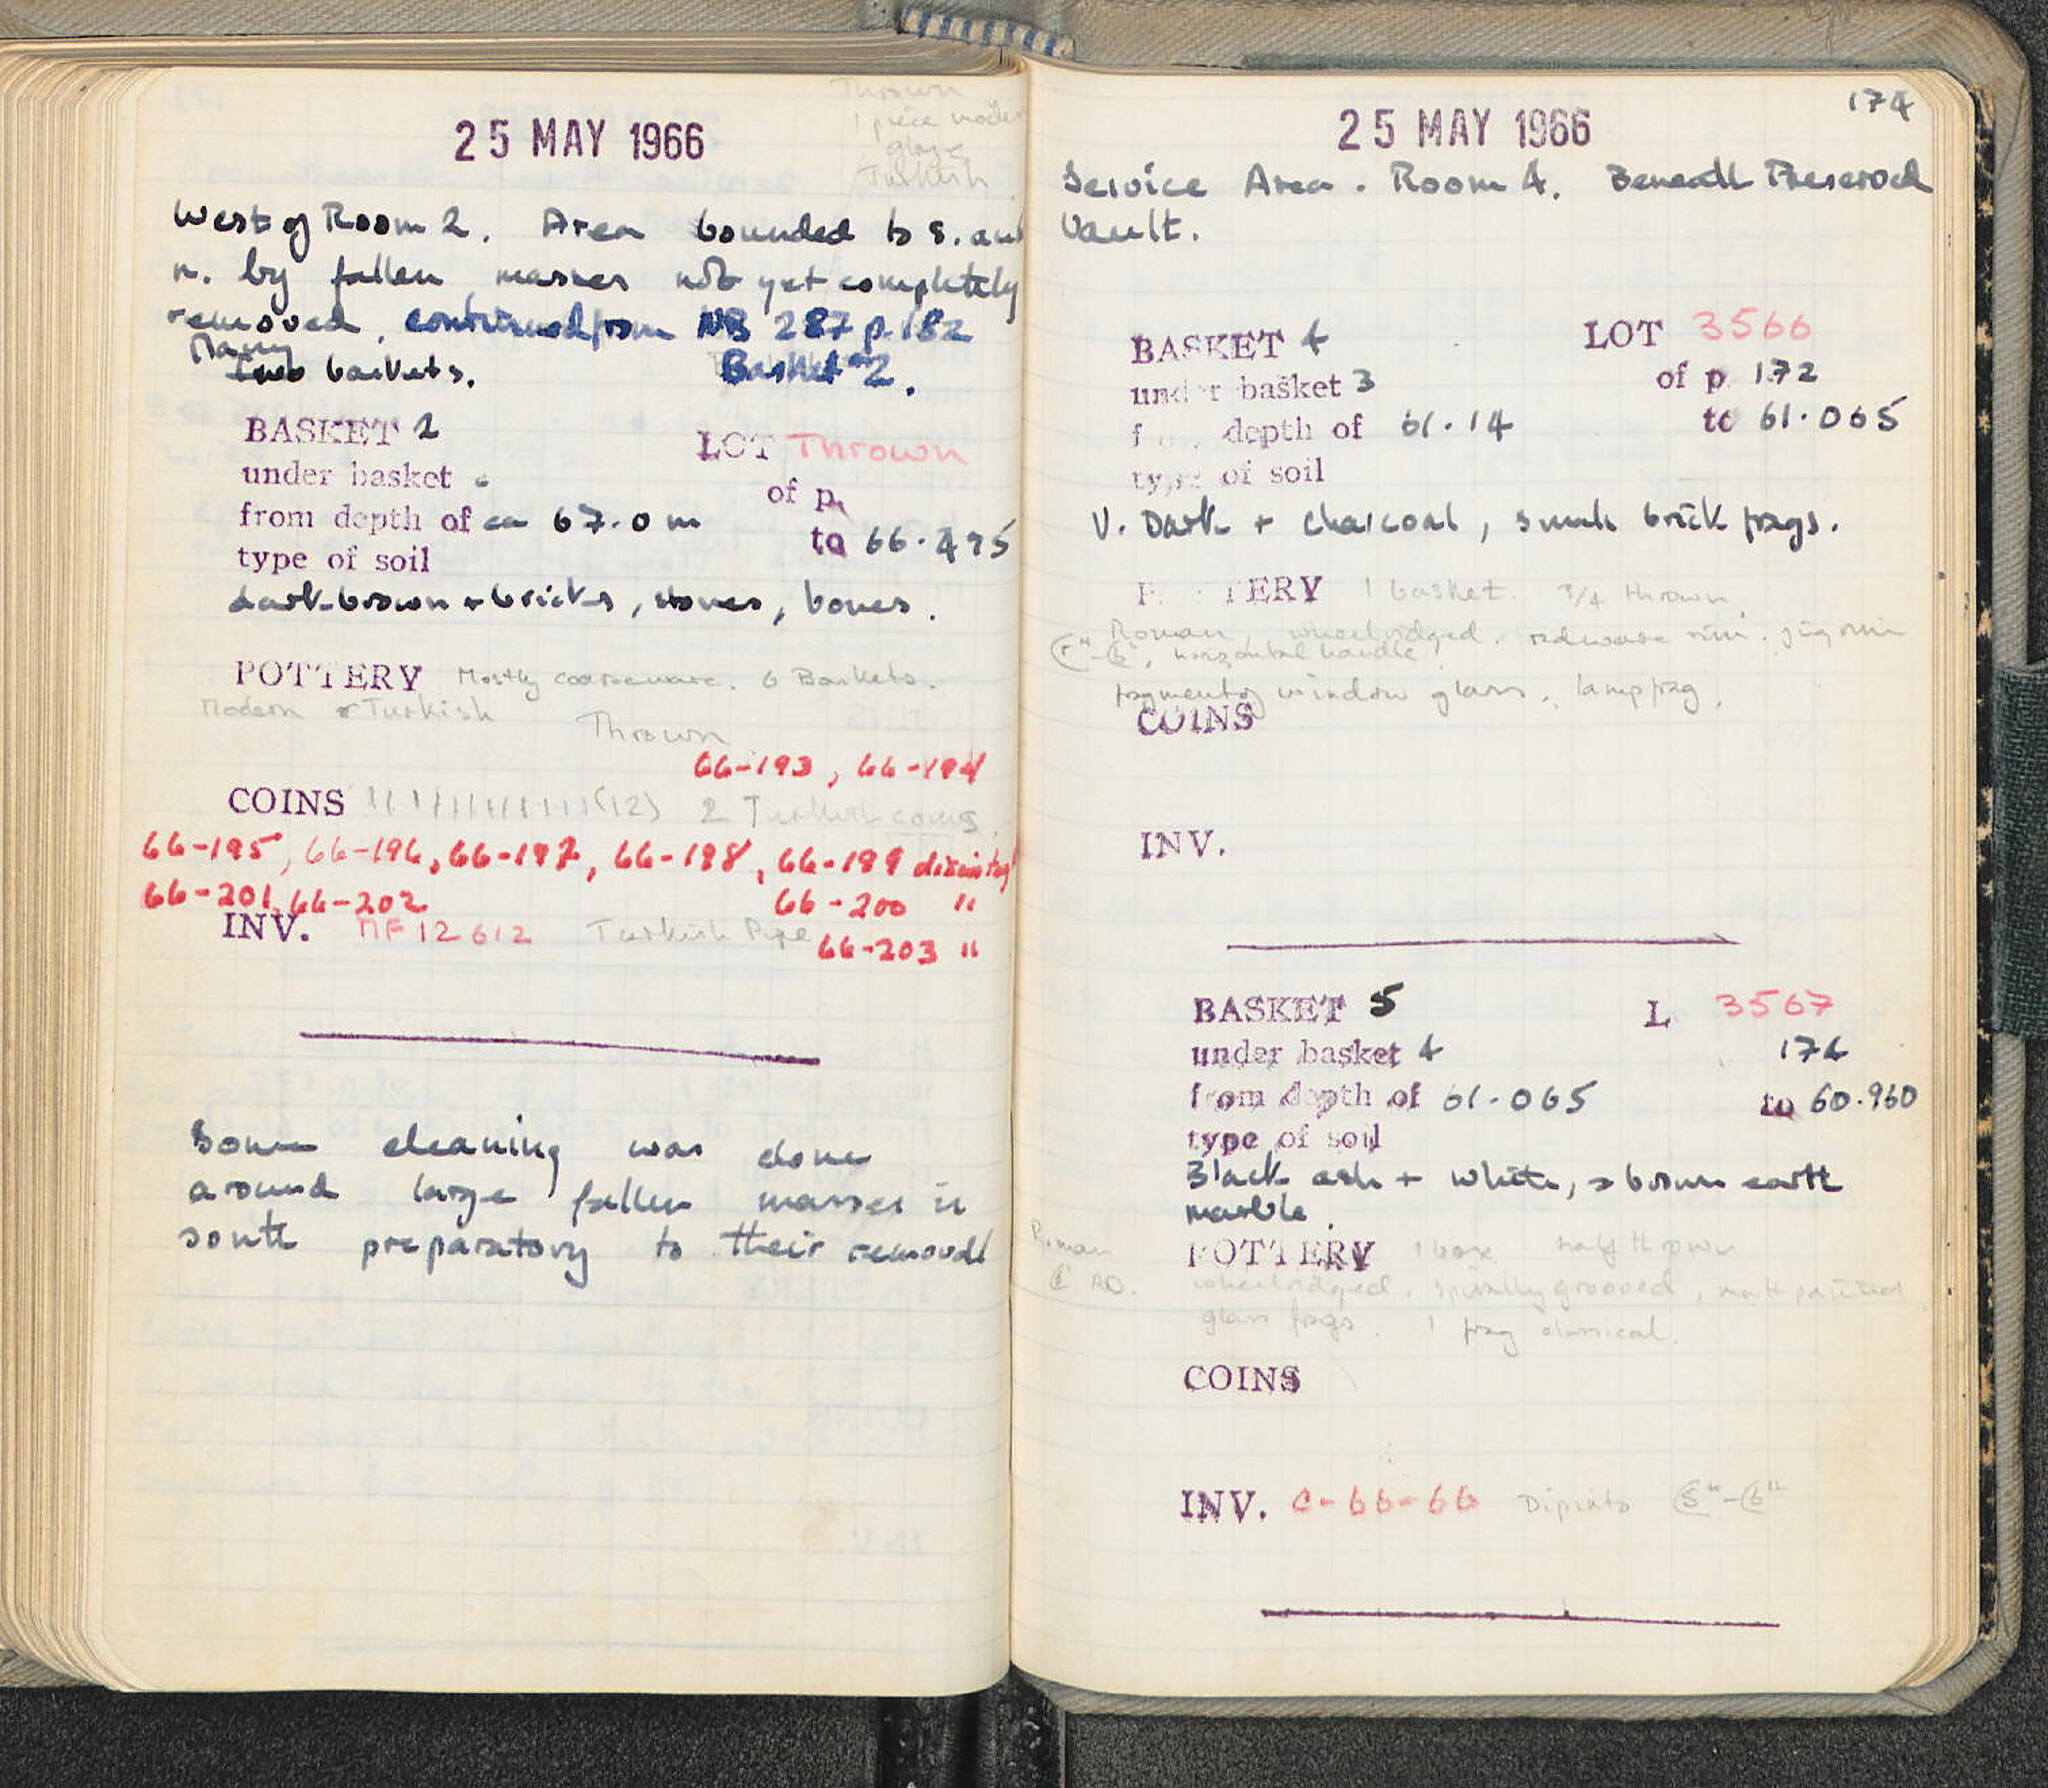 Thrown
1 piece modern
glaze
Turkish
25 MAY 1966
West of Room 2. Area bounded to S. and
n. by fallen masses not yet completely
removed, continued from NB 287 p. 182
Many baskets. Basket #2.
BASKET 2 LOT Thrown
under basket of p.
from depth of ca 67.0 m to 66.495
type of soil
dark brown + bricks, stones, bones.
POTTERY Mostly coarseware. 6 Baskets.
Modern & Turkish Thrown
66-193, 66-194
COINS (12) 2 Turkish coins.
66-195, 66-196, 66-197, 66-198, 66-199
66-201, 66-202 66-200 "
INV. MF 12612 Turkish Pipe 66-203 "
Some cleaning was done
around large fallen masses in
south preparatory to their removal
174
25 MAY 1966
Service Area. Room 4. Beneath Preserved
Vault.
BASKET 4 LOT 3566
under basket 3 of p. 172
f depth of 61.14 to 61.065
type of soil
V. Dark + charcoal, small brick frags.
P TERY 1 basket. 3/4 thrown.
Roman, wheelridged. redware rim. jug rim
horizontal handle.
fragment of window glass. lamp frag.
COINS
INV.
BASKET 5 L 3567
under basket 4 174
from depth of 61.065 to 60.960
type of soil
Black ash + white, > brown earth
marble.
Roman POTTERY 1 box half thrown
AD. wheelridged, spirally grooved,
glass frags. 1 frag classical.
COINS
INV. C-66-66 Dipinto